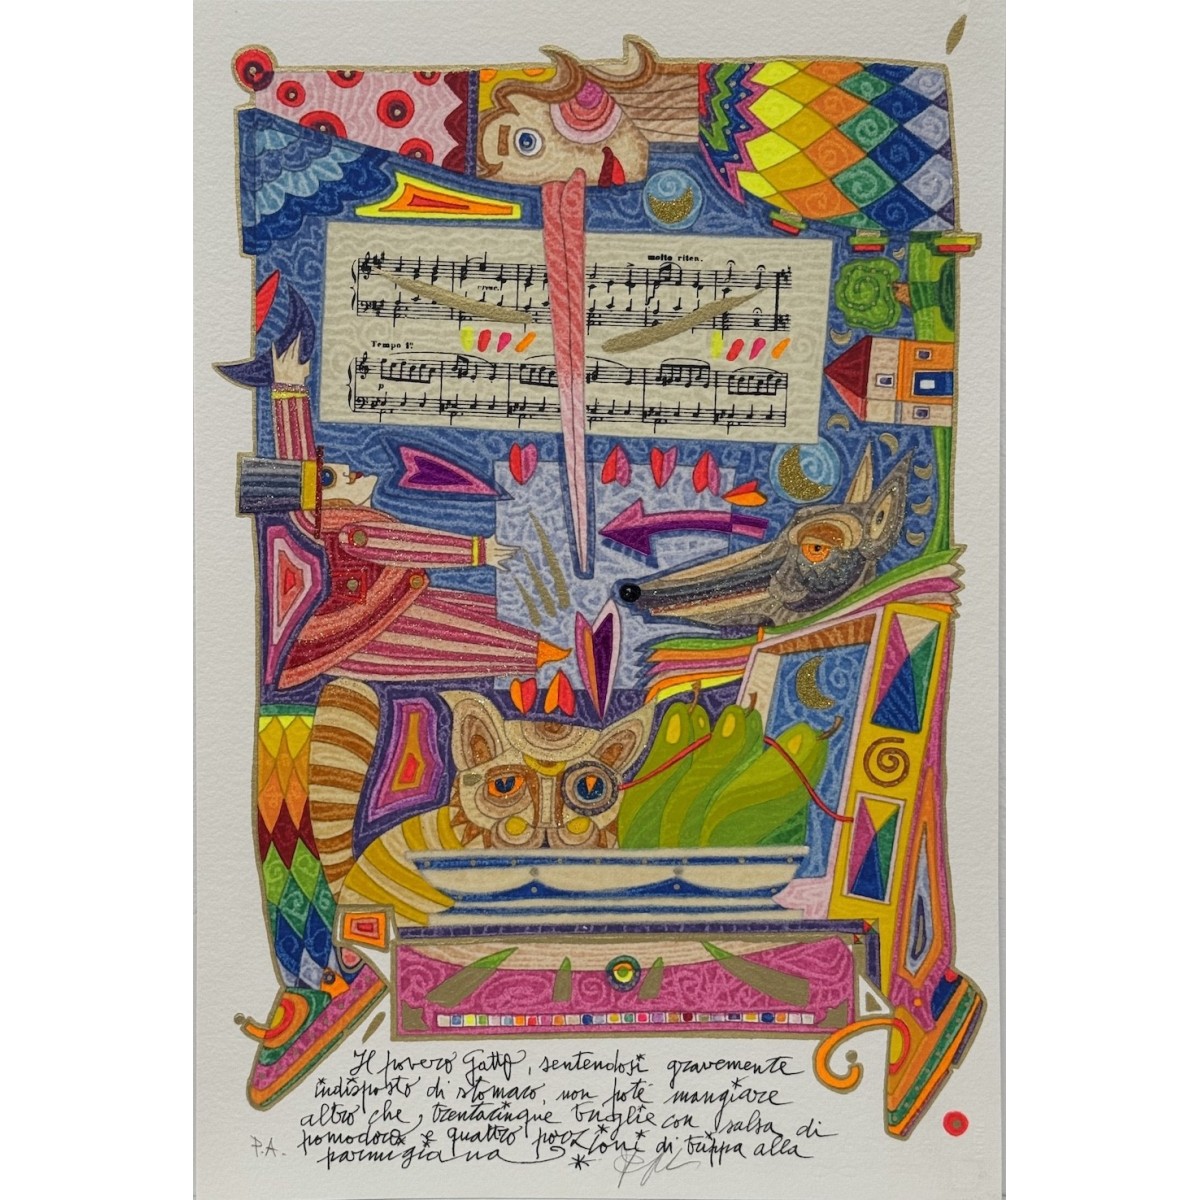 molto riten.
cresc.
Tempo Iº.
p
Il povero Gatto, sentendosi gravemente
indisposto di stomaco, non poté mangiare
altro che, trentacinque triglie con salsa di
pomodoro e quattro porzioni di trippa alla
parmigiana
P.A.